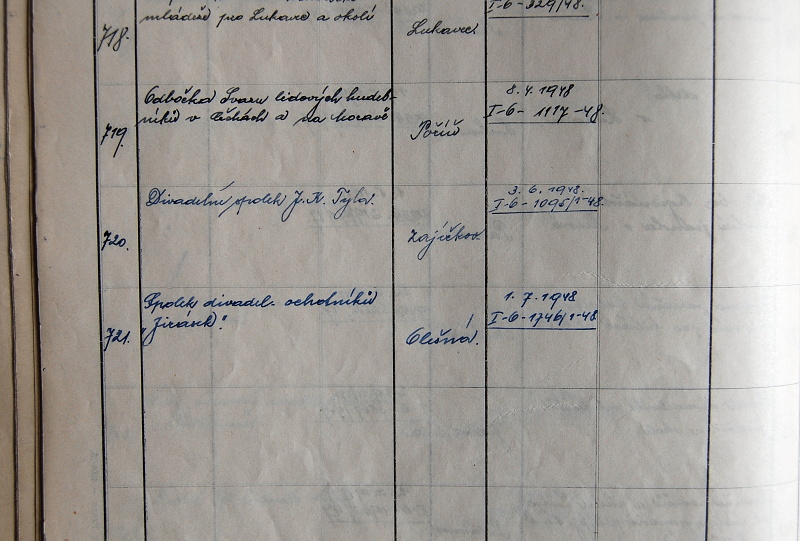 I-6-329/48.
mládeže pro Lukavec a okolí
718.
Lukavec
Odbočka Svazu lidových hudeb-
níků v Čechách a na Moravě
719.
Pořič
8.4.1948
I-6- 1117-48.
Divadelní spolek J. K. Tyla.
720.
Zajíčkov
3.6.1948.
I-6-1095/1-48.
Spolek divadel. ochotníků
„Jirásek".
721.
Olešná.
1.7.1948
I-6-1746/1-48